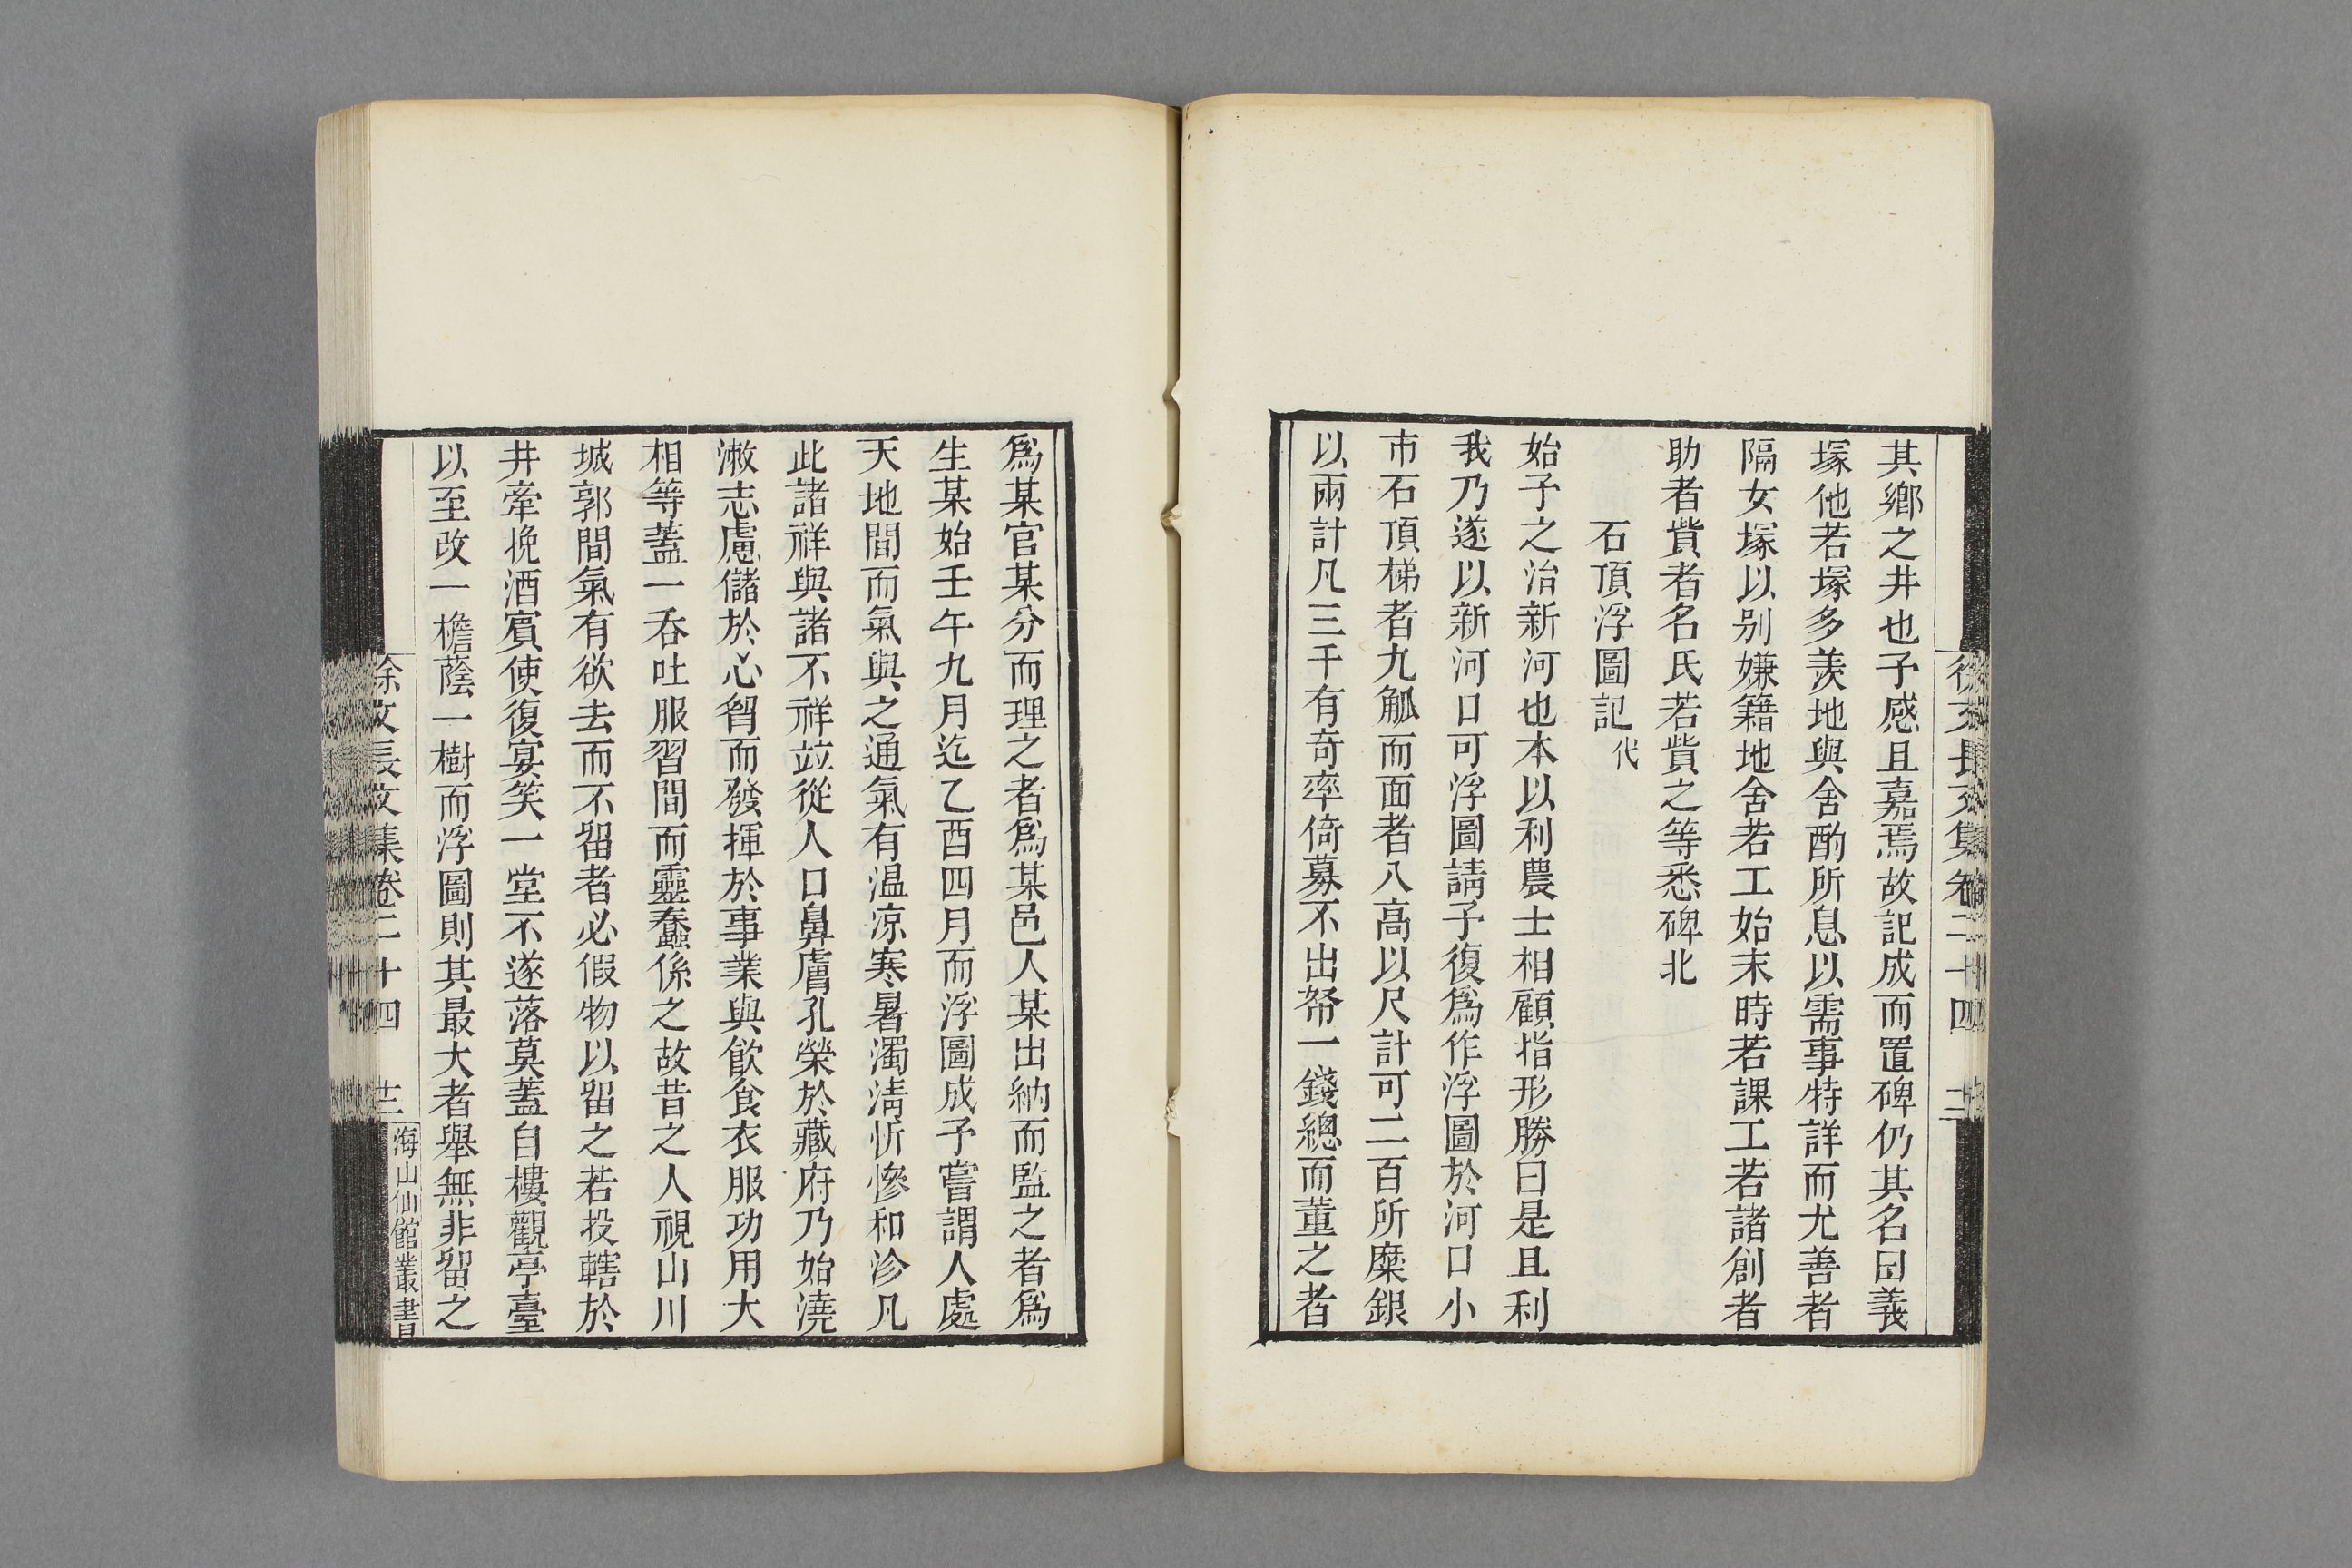 徐文長文集卷二十四
其鄉之井也予感且嘉焉故記成而置碑仍其名曰義
塚他若塚多羨地與舍酌所息以需事特詳而尤善者
隔女塚以别嫌籍地舍若工始末時若課工若諸創者
助者貲者名氏若貲之等悉碑北
石頂浮圖記代
始予之治新河也本以利農士相顧指形勝曰是且利
我乃遂以新河口可浮圖請予復爲作浮圖於河口小
市石頂梯者九觚而面者八高以尺計可二百所糜銀
以兩計凡三千有奇率倚募不出帑一錢總而董之者
爲某官某分而理之者爲某邑人某出納而監之者爲
生某始壬午九月迄乙酉四月而浮圖成予嘗謂人處
天地間而氣與之通氣有温凉寒暑濁淸忻慘和沴凡
此諸祥與諸不祥竝從人口鼻膚孔榮於藏府乃始澆
漱志慮儲於心䏍而發揮於事業與飮食衣服功用大
相等蓋一呑吐服習間而靈蠢係之故昔之人視山川
城郭間氣有欲去而不畱者必假物以畱之若投轄於
井牽挽酒賓使復宴笑一堂不遂落莫蓋自樓觀亭臺
以至改一檐蔭一樹而浮圖則其最大者舉無非畱之
徐文長文集卷二十四
海山仙館叢書